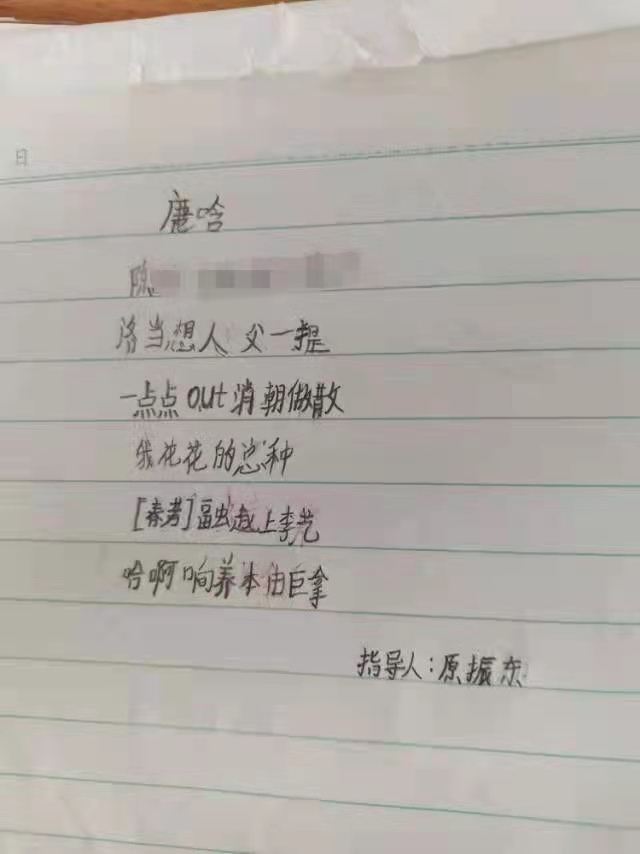 日
鹿晗
陈
洛当想人父一提
一点点out消朝做散
我花花的总种
[秦考]副出赵上李艺
哈啊响养本由巨拿
指导人:原振东